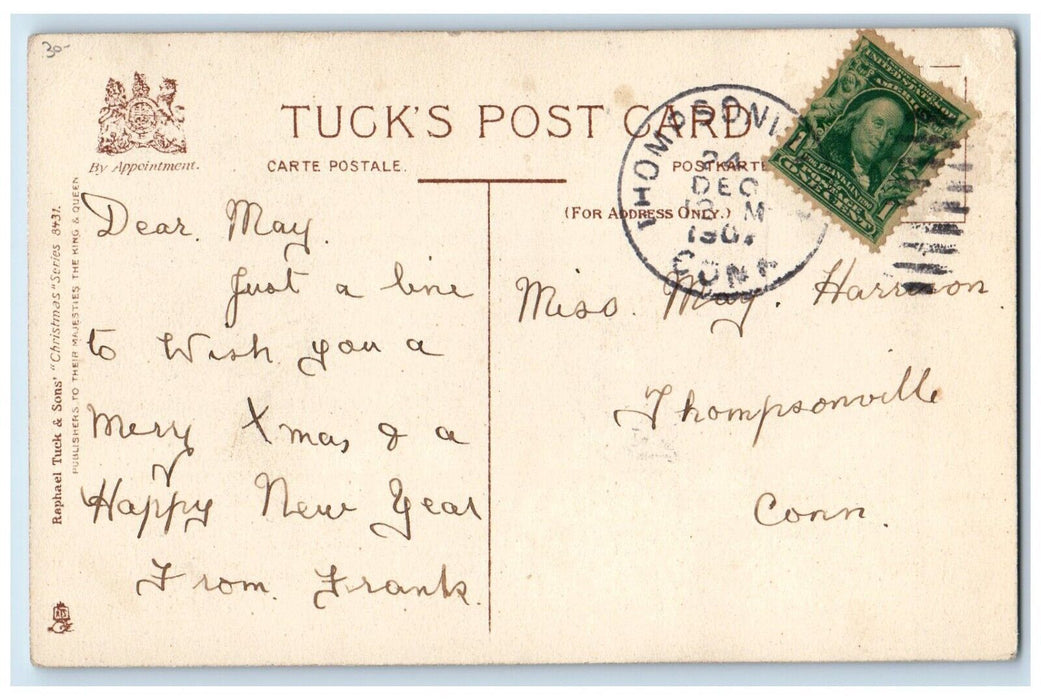 30-
By Appointment.
TUCK'S POST CARD
CARTE POSTALE.
POSTKARTE
(FOR ADDRESS ONLY.)
Raphael Tuck & Sons' "Christmas" Series 8431.
PUBLISHERS TO THEIR MAJESTIES THE KING & QUEEN
THOMPSONVI
24
DEC
12 M
190
CONN
UNITED STATES OF
AMERICA
FRANKLIN
ONE CENT
1
1
Dear. May.
Just a line
to Wish you a
Merry Xmas & a
Happy New Year
From. Frank.
Miss. May. Harrison.
Thompsonville
Conn.